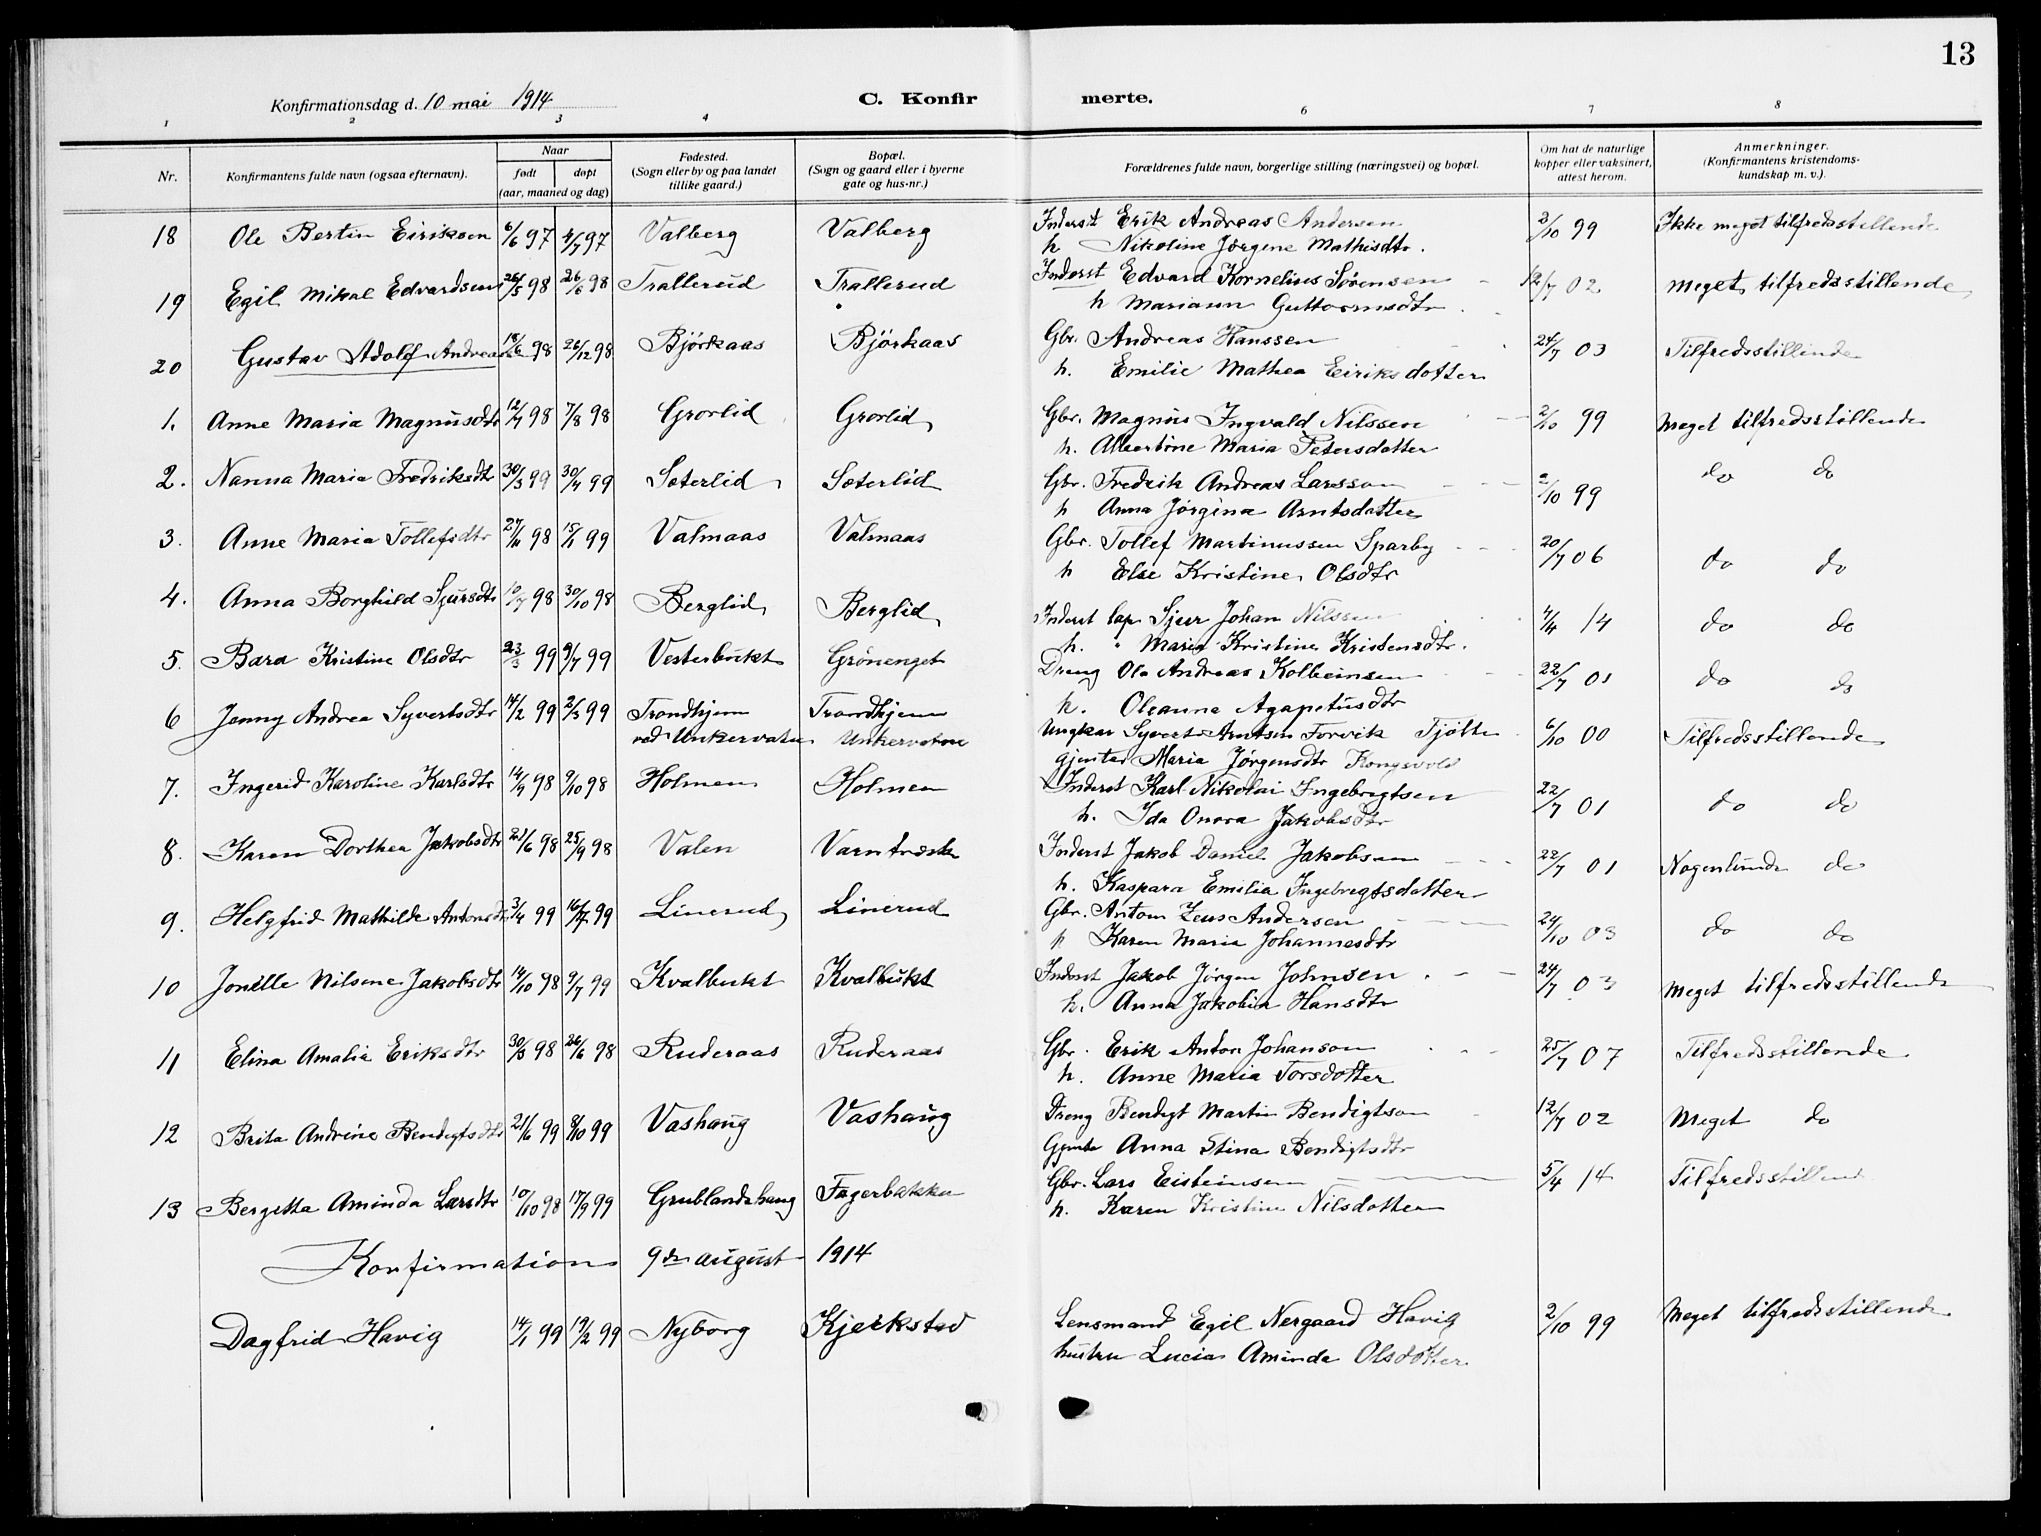 13
Konfirmationsdag d. 10 mai 1914
C. Konfirmerte.
1 2 3 4 6 7 8
Nr. Konfirmantens fulde navn (ogsaa efternavn). Naar født døpt (aar, maaned og dag) Fødested. (Sogn eller by og paa landet tillike gaard.) Bopæl. (Sogn og gaard eller i byerne gate og hus-nr.) Forældrenes fulde navn, borgerlige stilling (næringsvei) og bopæl. Om hat de naturlige kopper eller vaksinert, attest herom. Anmerkninger. (Konfirmantens kristendoms-kundskap m. v.).
18 Ole Bertin Eiriksen 6/6 97 4/7 97 Valberg Valberg Inderst Erik Andreas Andersen 2/10 99 Ikke meget tilfredsstillende
h. Nikoline Jørgene Mathisdtr.
19 Egil Mikal Edvardsen 26/5 98 26/6 98 Trallerud Trallerud Inderst Edvard Kornelius Sørensen 12/7 02 Meget tilfredsstillende
h Mariann Guttormsdtr
20 Gustav Adolf Andreassen 98 26/12 98 Bjørkaas Bjørkaas Gbr. Andreas Hanssen 24/7 03 Tilfredsstillende
h. Emilie Mathea Eiriksdotter
1. Anne Maria Magnusdtr 12/7 98 7/8 98 Grovlid Grovlid Gbr. Magnus Ingvald Nilssen 2/10 99 Meget tilfredsstillende
h. Albertine Maria Petersdotter
2. Nanna Maria Fredriksdtr 30/3 99 30/4 99 Sæterlid Sæterlid Gbr. Fredrik Andreas Larsson 2/10 99 do do
h Anna Jørgina Arntsdotter
3. Anne Maria Tollefsdtr 27/11 98 15/1 99 Valmaas Valmaas Gbr. Tollef Martinussen Sparby 20/7 06 do do
h Else Kristine Olsdtr
4. Anna Borghild Sjursdtr 10/7 98 30/10 98 Berglid Berglid Inderst lap Sjur Johan Nilssen 4/4 14 do do
h. " Maria Kristine Kristensdtr.
5. Bara Kristine Olsdtr 23/3 99 9/7 99 Vesterbukt Grønenget Dreng Ole Andreas Kolbeinsen 22/7 01 do do
h. Oleanna Agapetusdtr
6 Jenny Andrea Syvertsdtr 14/2 99 2/3 99 Trondhjem Trondhjem Ungkar Syvert Arntsen Forvik Tjøtta 6/10 00 Tilfredsstillende
ved Unkervatn Unkervatne gjenten Maria Jørgensdtr Kongsvold
7. Ingerid Karoline Karlsdtr 14/9 98 9/10 98 Holmen Holmen Inderst Karl Nikolai Ingebrigtsen 22/7 01 do do
h. Ida Onora Jakobsdtr
8. Karen Dorthea Jakobsdtr 21/6 98 25/9 98 Valen Varntræsk Inderst Jakob Daniel Jakobsen 22/7 01 Nogenlunde do
h. Kaspara Emilia Ingebregtsdotter
9. Helgfrid Mathilde Antonsdtr 3/4 99 16/7 99 Linerud Linerud Gbr. Anton Zeus Andersen 24/10 03 do do
h Karen Maria Johannesdtr
10 Jonille Nilsine Jakobsdtr 14/10 98 9/7 99 Kvalbukt Kvalbukt Inderst Jakob Jørgen Johnsen 24/7 03 Meget tilfredsstillende
h. Anna Jakobia Hansdtr
11 Elina Amalia Eriksdtr 30/3 98 26/6 98 Ruderaas Ruderaas Gbr. Erik Anton Johanson 25/7 07 Tilfredsstillende
h. Anne Maria Torsdotter
12 Brita Andrine Bendigtsdtr 21/6 99 8/10 99 Vashaug Vashaug Dreng Bendigt Martin Bendigtson 12/7 02 Meget do
Gjente Anna Stina Bendigtsdtr
13 Bergetta Aminda Larsdtr 10/10 98 17/9 99 Grublandshaug Fagerbakken Gbr. Lars Eisteinsen 5/4 14 Tilfredsstillend
h. Karen Kristine Nilsdotter
Konfirmation 9de august 1914
Dagfrid Havig 14/1 99 19/2 99 Nyborg Kjerkstad Lensmand Egil Nergaard Havig 2/10 99 Meget tilfredsstillende
hustru Lucia Aminda Olsdotter